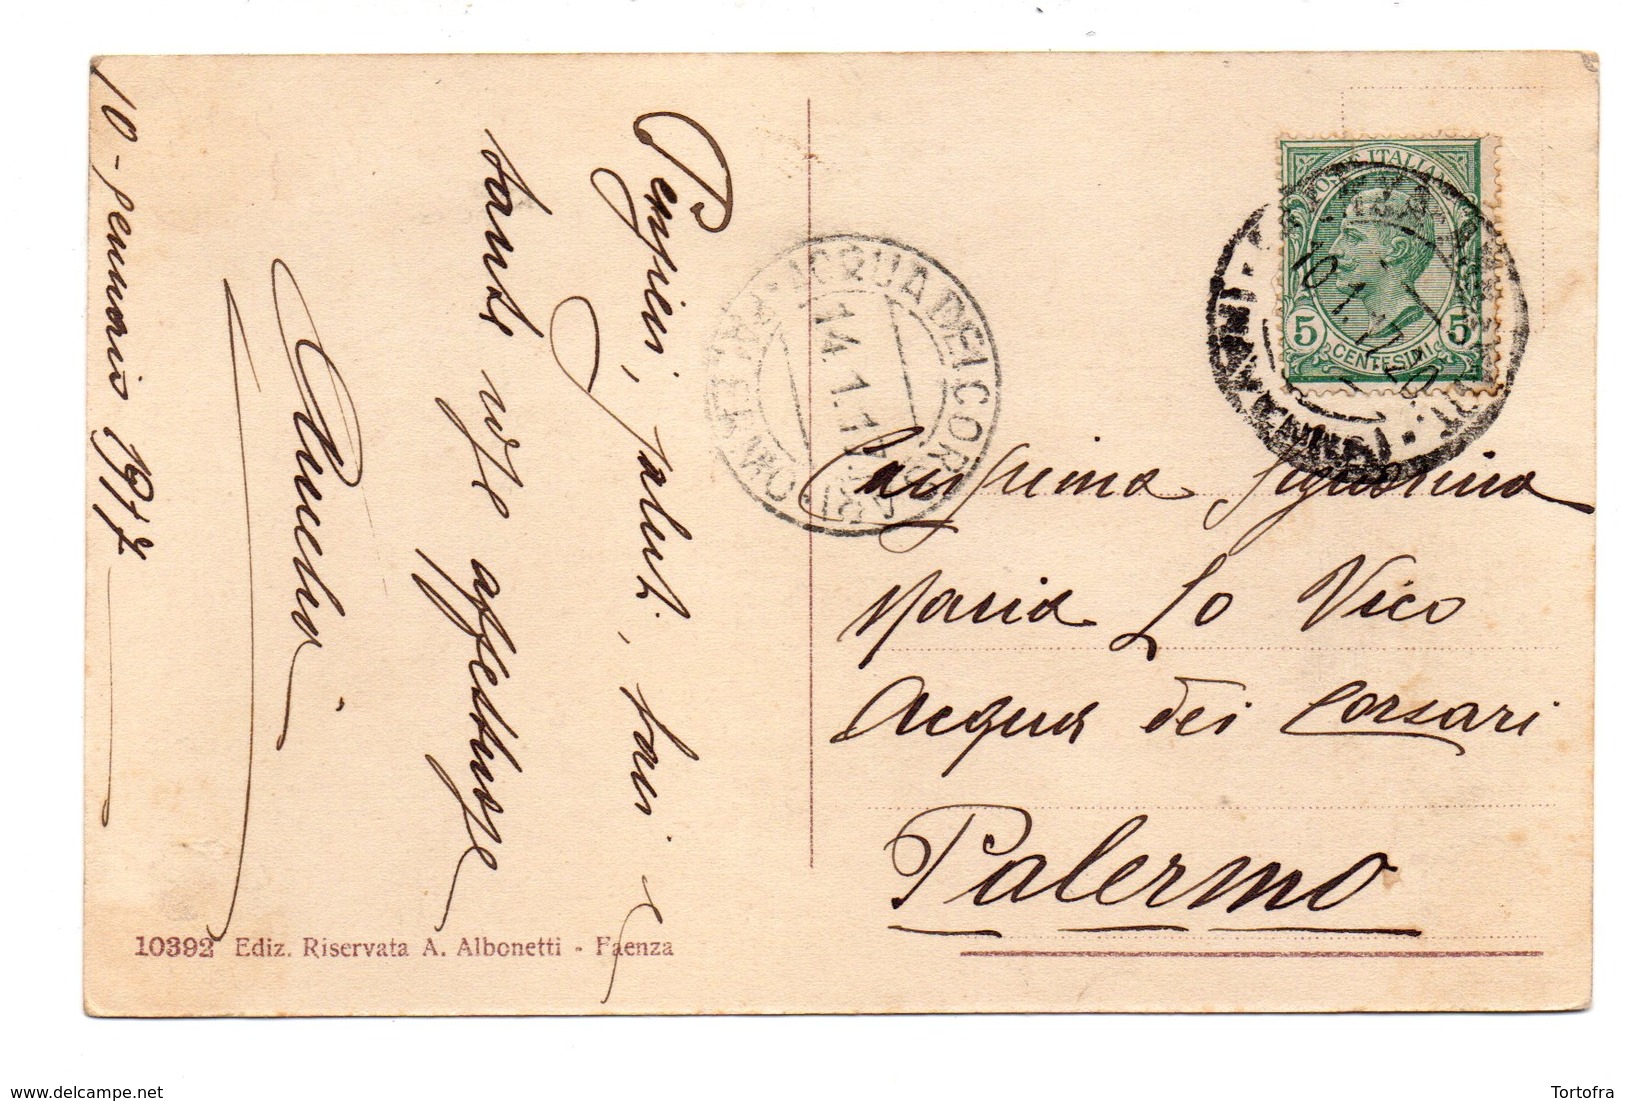 10 - gennaio 1917
Pensieri, saluti, baci e
tante affettuose
Maria Lo Vico
Acqua dei Corsari
Palermo
POSTE ITALIANE
5 CENTESIMI 5
10.1.17.20
ACQUA DEI CORSARI
14.1.17
10392 Ediz. Riservata A. Albonetti - Faenza
delcampe.net
Tortofra